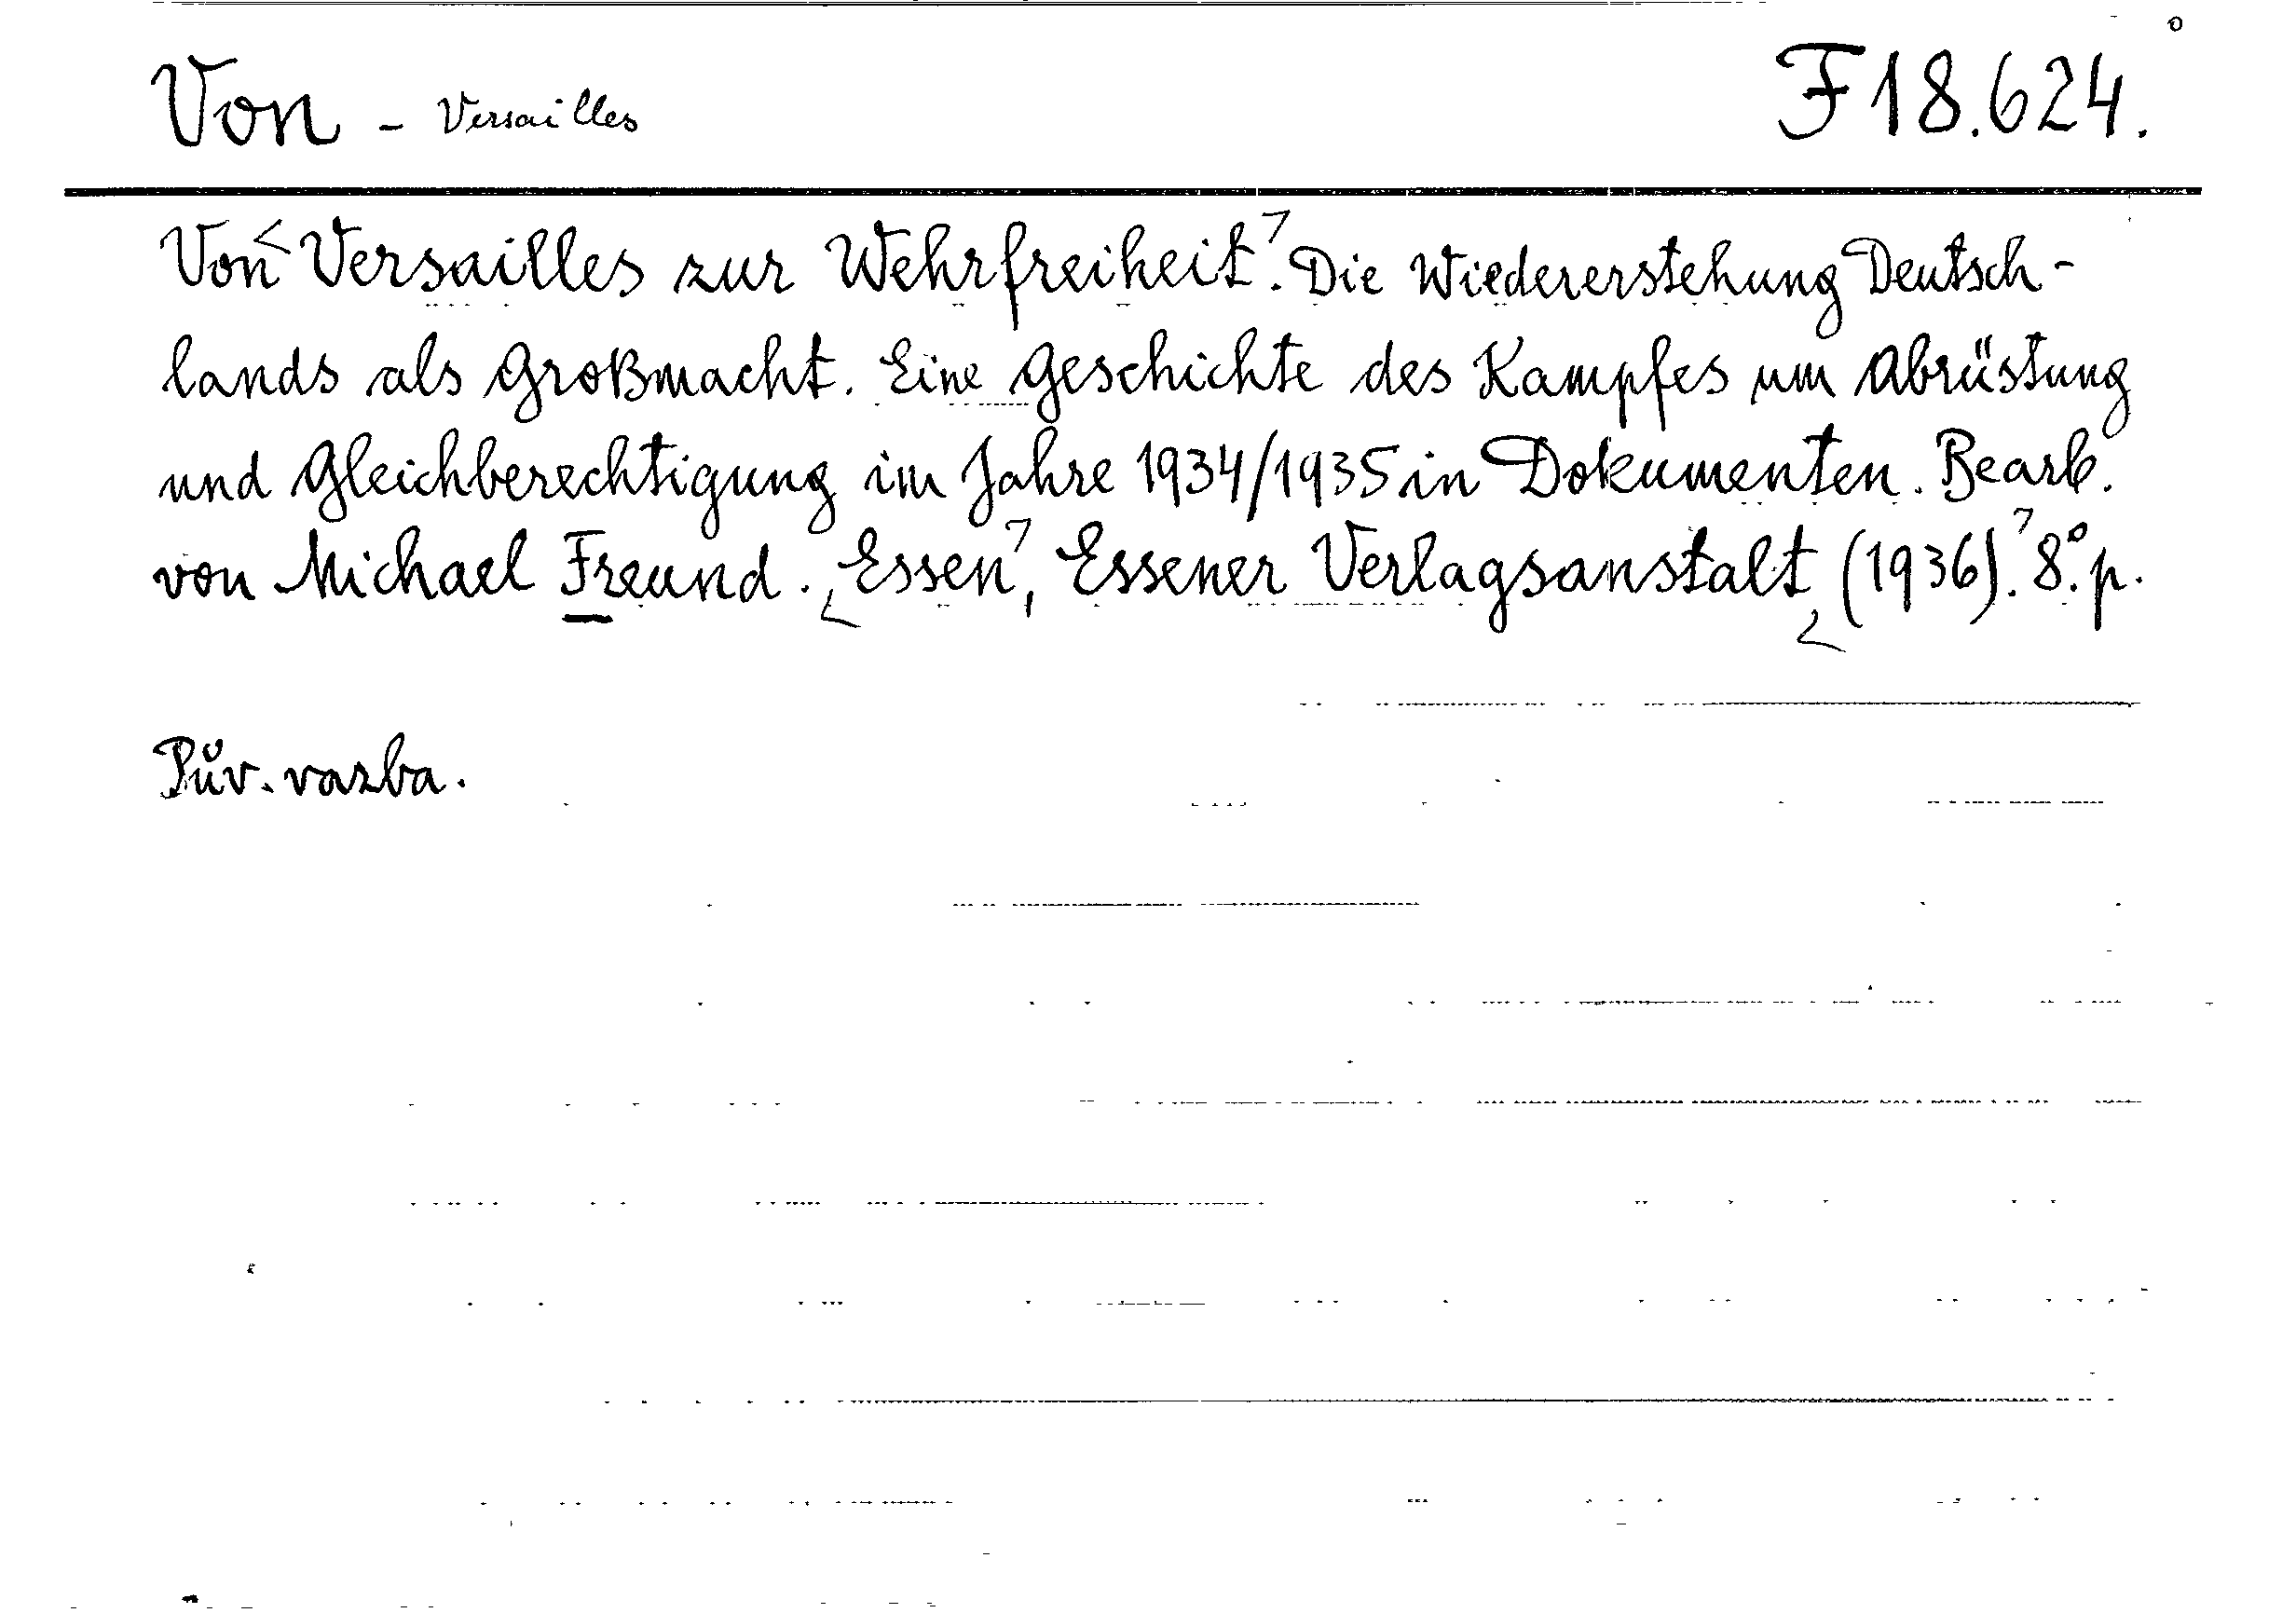 Von - Versailles F 18.624.
Von Versailles zur Wehrfreiheit. Die Wiedererstehung Deutsch-
lands als Großmacht. Eine Geschichte des Kampfes um Abrüstung
und Gleichberechtigung im Jahre 1934/1935 in Dokumenten. Bearb.
von Michael Freund. Essen, Essener Verlagsanstalt (1936). 8°. p.
Pův. vazba.